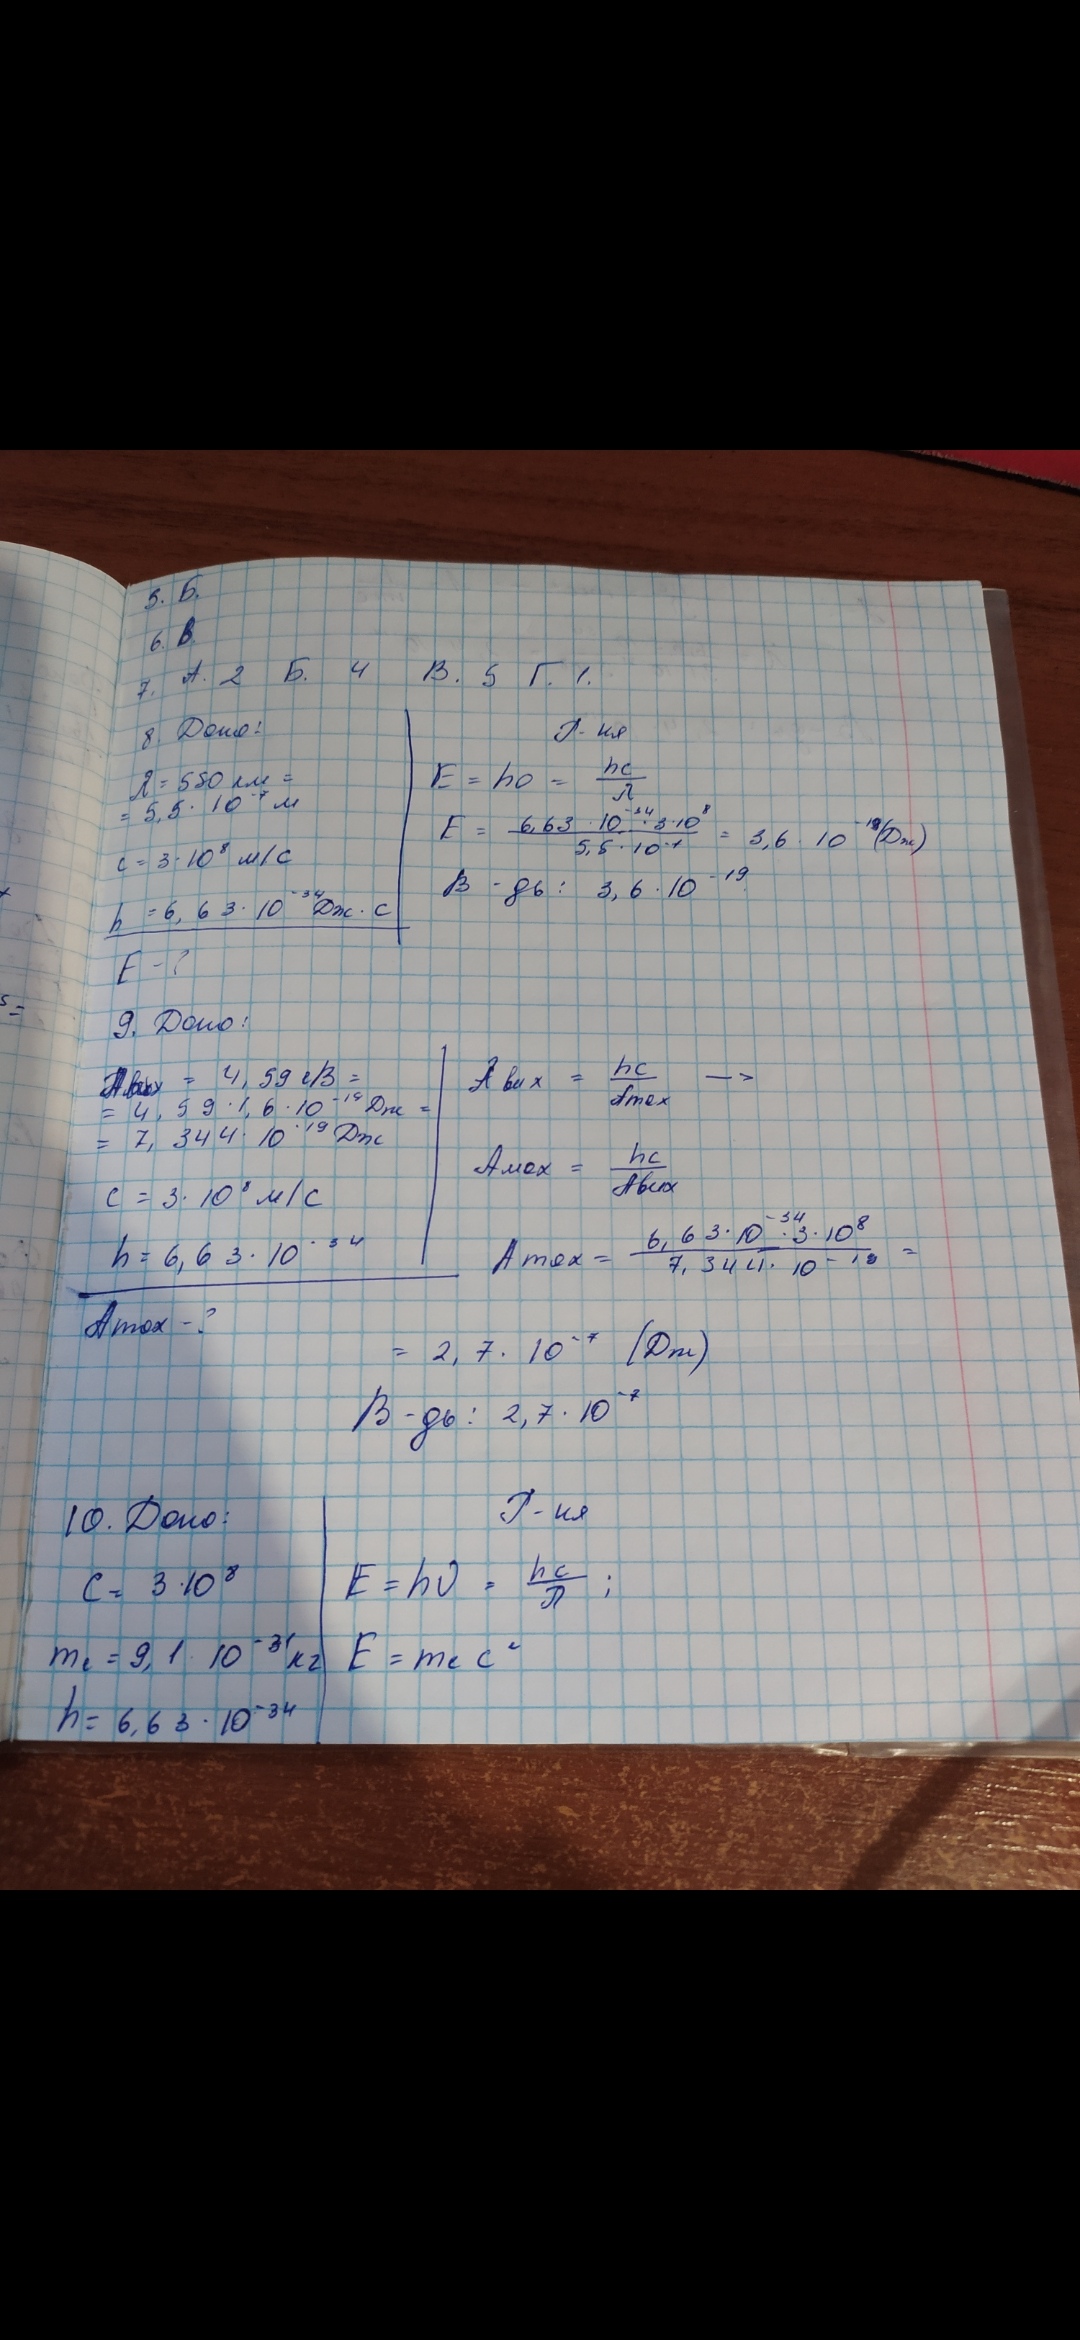 5. Б.
6. В.
7. А. 2 Б. 4 В. 5 Г. 1.
8. Дано:
λ = 550 нм =
= 5,5 · 10⁻⁷ м
c = 3 · 10⁸ м/с
h = 6,63 · 10⁻³⁴ Дж · с
E - ?
Р-ня
E = hυ = hc/λ
E = 6,63 · 10⁻³⁴ · 3 · 10⁸ / 5,5 · 10⁻⁷ = 3,6 · 10⁻¹⁹ (Дж)
В-дь: 3,6 · 10⁻¹⁹.
9. Дано:
Aвих = 4,59 еВ =
= 4,59 · 1,6 · 10⁻¹⁹ Дж =
= 7,344 · 10⁻¹⁹ Дж
c = 3 · 10⁸ м/с
h = 6,63 · 10⁻³⁴
λmax - ?
Aвих = hc/λmax →
λmax = hc/Aвих
λmax = 6,63 · 10⁻³⁴ · 3 · 10⁸ / 7,344 · 10⁻¹⁹ =
= 2,7 · 10⁻⁷ (Дж)
В-дь: 2,7 · 10⁻⁷
10. Дано:
c = 3 · 10⁸
me = 9,1 · 10⁻³¹ кг
h = 6,63 · 10⁻³⁴
Р-ня
E = hυ = hc/λ ;
E = me c²